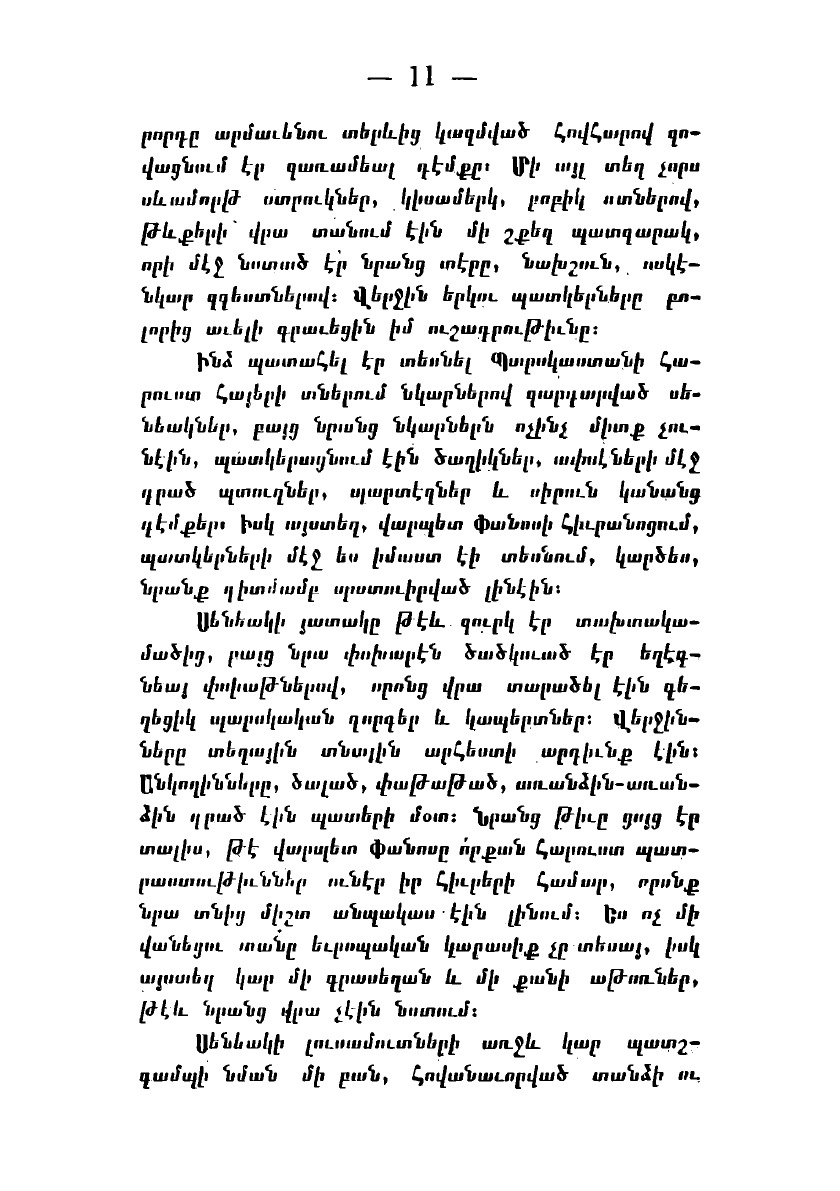 — 11 —
րորդը արմաւենու տերևից կազմված հովհարով զո-
վացնում էր զառամեալ դէմքը։ Մի այլ տեղ չորս
սևամորթ ստրուկներ, կիսամերկ, բոբիկ ոտներով,
թևքերի վրա տանում էին մի շքեղ պատգարակ,
որի մէջ նստած էր նրանց տէրը, նախշուն, ոսկէ-
նկար զգեստներով։ Վերջին երկու պատկերները բո-
լորից աւելի գրաւեցին իմ ուշադրութիւնը։
Ինձ պատահել էր տեսնել Պարսկաստանի հա-
րուստ հայերի տներում նկարներով զարդարված սե-
նեակներ, բայց նրանց նկարներն ոչինչ միտք չու-
նէին, պատկերացնում էին ծաղիկներ, ափսէների մէջ
դրած պտուղներ, պարտէզներ և սիրուն կանանց
դէմքեր։ Իսկ այստեղ, վարպետ Փանոսի հիւրանոցում,
պատկերների մէջ ես իմաստ էի տեսնում, կարծես,
նրանք դիտմամբ պատուիրված լինէին։
Սենեակի յատակը թէև զուրկ էր տախտակա-
մածից, բայց նրա փոխարէն ծածկուած էր եղէգ-
նեայ փսիաթներով, որոնց վրա տարածել էին գե-
ղեցիկ պարսկական գորգեր և կապերտներ։ Վերջին-
ները տեղային տնային արհեստի արդիւնք էին։
Անկողինները, ծալած, փաթաթած, առանձին-առան-
ձին դրած էին պատերի մօտ։ Նրանց թիւը ցոյց էր
տալիս, թէ վարպետ Փանոսը ո՛րքան հարուստ պատ-
րաստութիւններ ունէր իր հիւրերի համար, որոնք
նրա տնից միշտ անպակաս էին լինում։ Ես ոչ մի
վանեցու տանը եւրոպական կարասիք չը տեսայ, իսկ
այստեղ կար մի գրասեղան և մի քանի աթոռներ,
թէև նրանց վրա չէին նստում։
Սենեակի լուսամուտների առջև կար պատշ-
գամպի նման մի բան, հովանաւորված տանձի ու